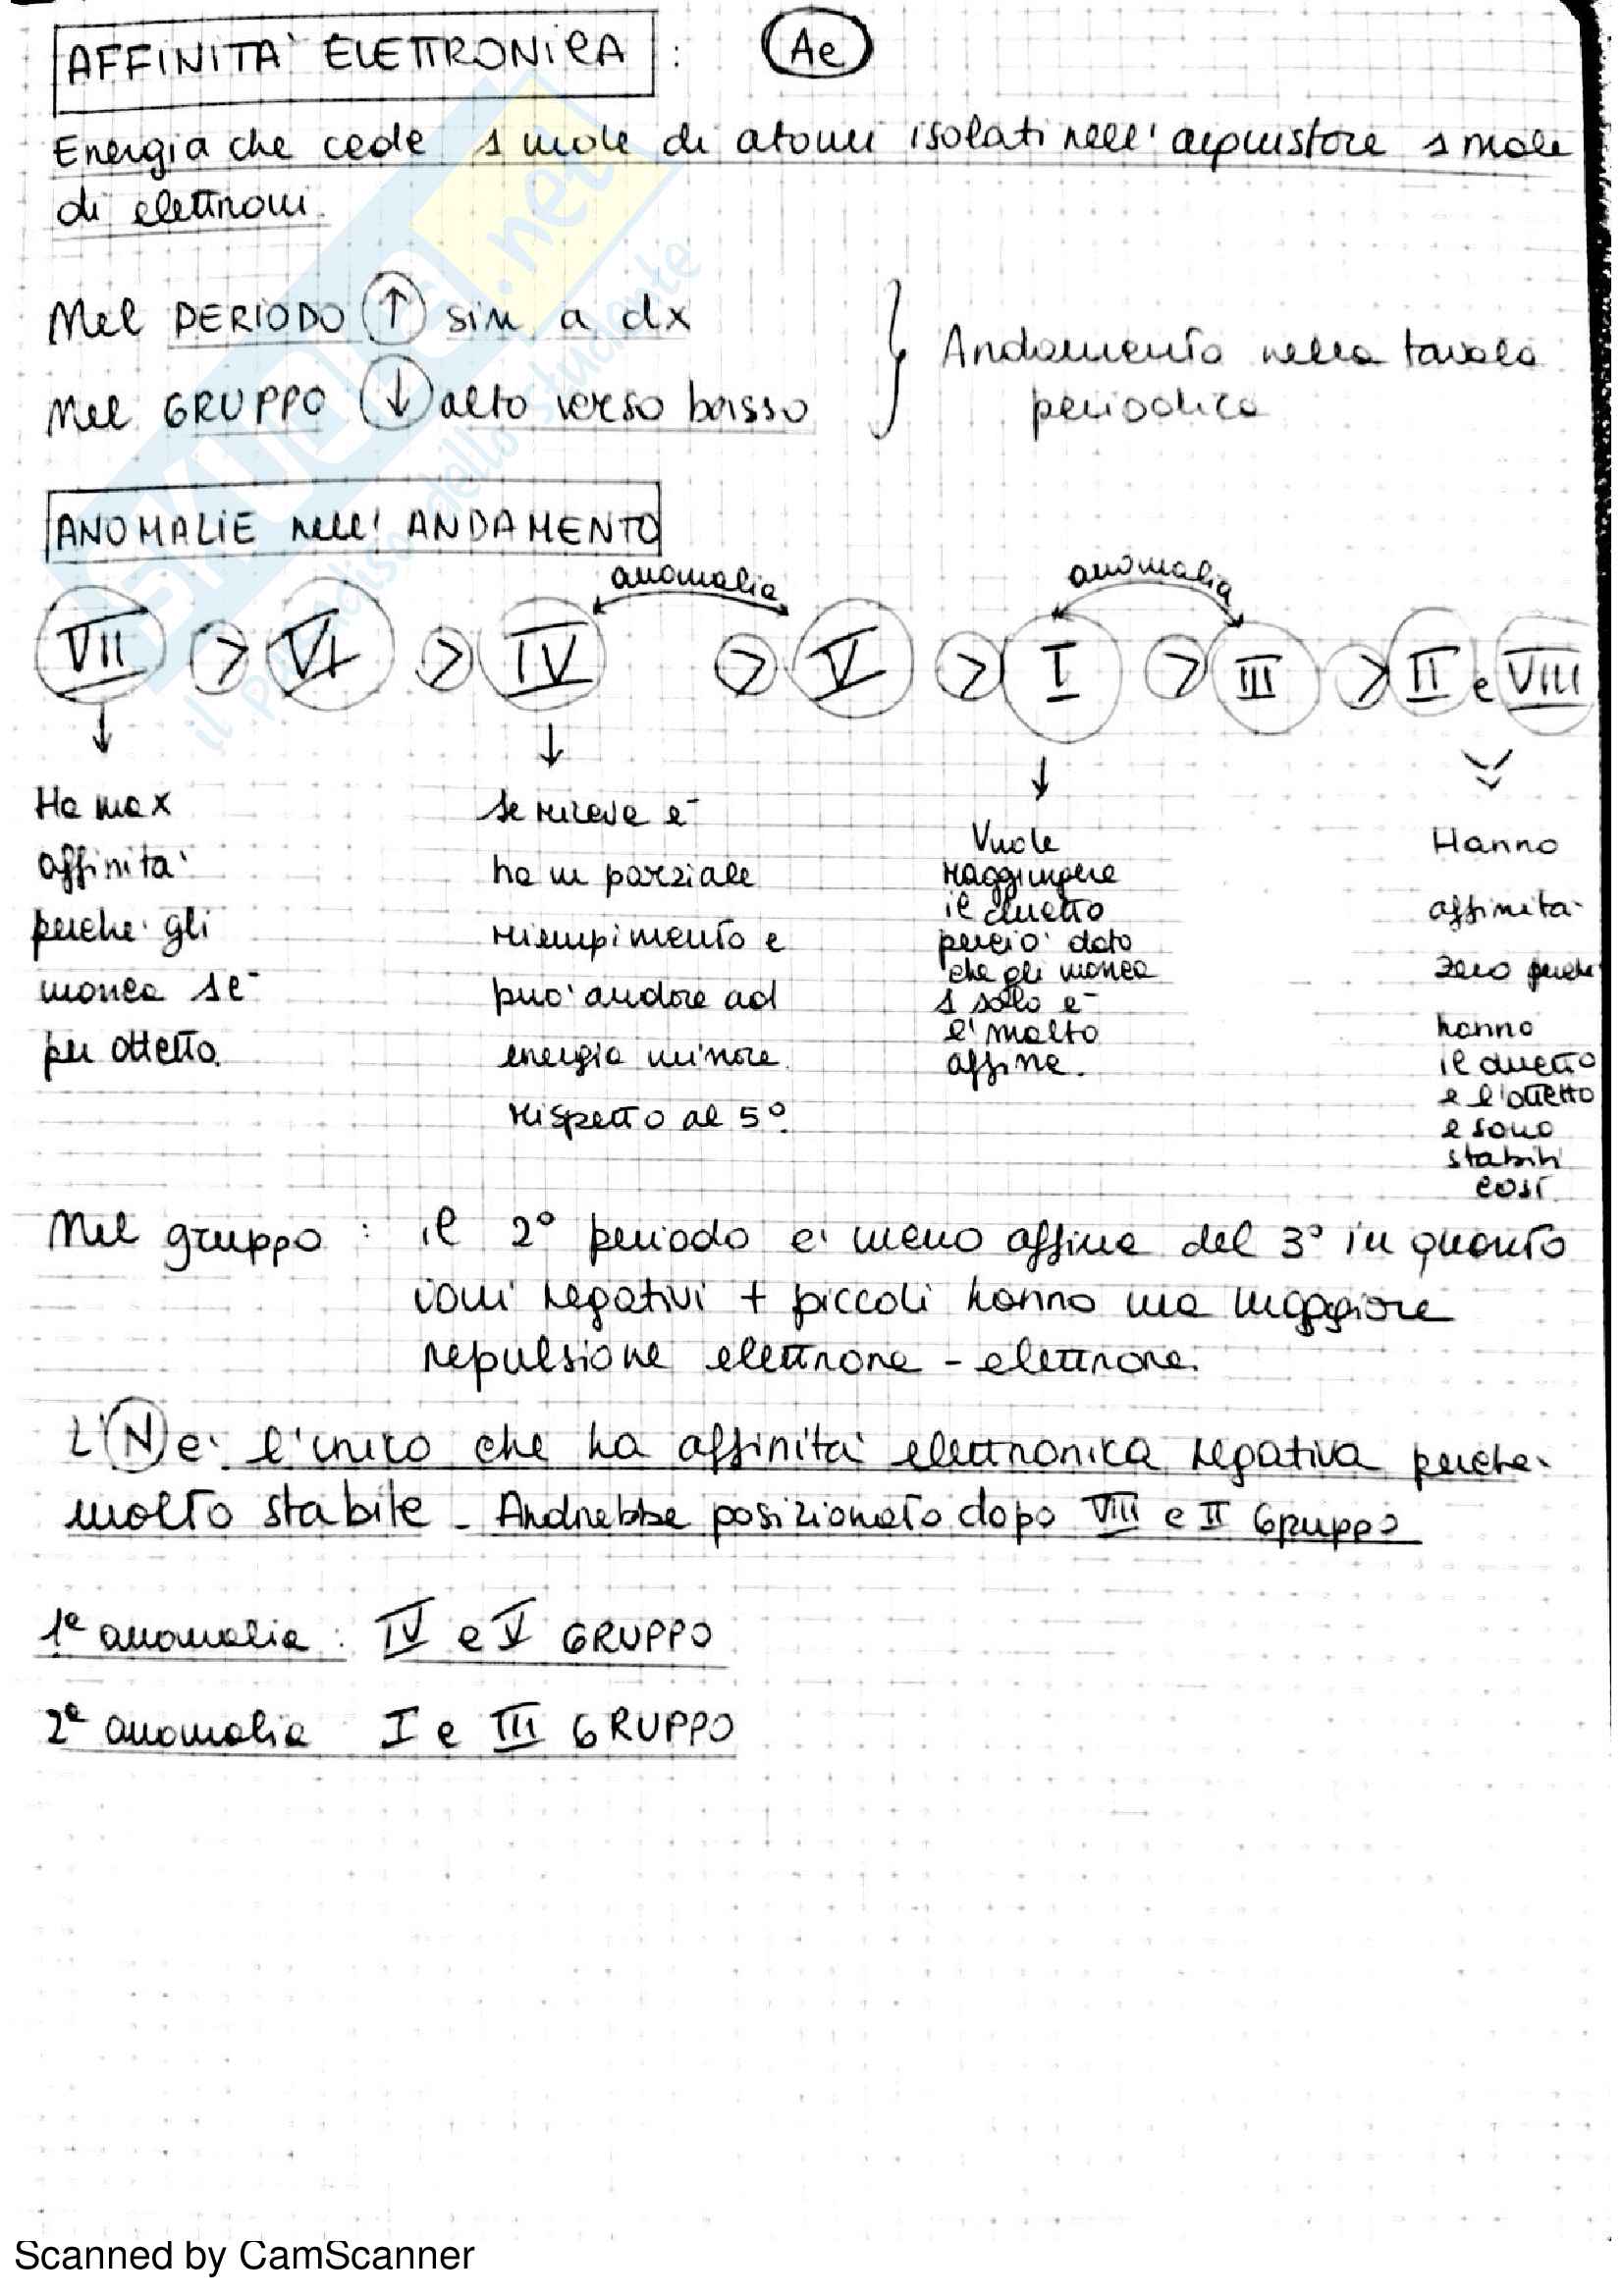 AFFINITA' ELETTRONICA : Ae
Energia che cede 1 mole di atomi isolati nell'acquistare 1 mole
di elettroni.
Nel PERIODO ↑ sin a dx
Nel GRUPPO ↓ alto verso basso
} Andamento nella tavola
periodica
ANOMALIE nell'ANDAMENTO
anomalia anomalia
VII > VI > IV > V > I > III > II e VIII
↓ ↓ ↓
Ha max
affinita'
perche' gli
manca 1e⁻
per ottetto.
Se riceve e⁻
ha un parziale
riempimento e
puo' andare ad
energia minore
rispetto al 5°.
Vuole
raggiungere
il duetto
percio' dato
che gli manca
1 solo e⁻
e' molto
affine.
Hanno
affinita'
zero perche'
hanno
il duetto
e l'ottetto
e sono
stabili
così.
Nel gruppo : il 2° periodo e' meno affine del 3° in quanto
ioni negativi + piccoli hanno una maggiore
repulsione elettrone - elettrone.
L'N e' l'unico che ha affinita' elettronica negativa perche'
molto stabile - Andrebbe posizionato dopo VIII e II Gruppo
1ª anomalia : IV e V GRUPPO
2ª anomalia I e III GRUPPO
SKUOLA.net
il paradiso dello studente
Scanned by CamScanner